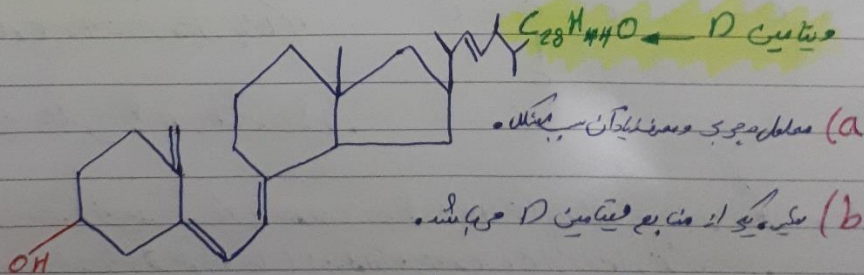 ویتامین D ← C28H44O
a) محلول در چربی و مصرف زیاد آن سبب مشکل.
b) شیر، یکی از منابع ویتامین D می‌باشد.
OH